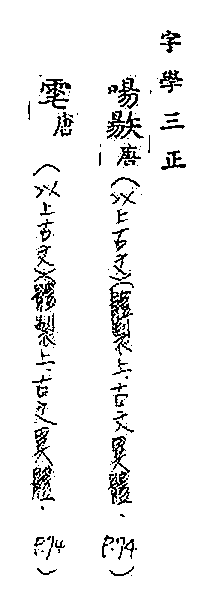 字學三正
啺 唐(以上古文)(體製上.古文異體.P.74)
唐(以上古文)(體製上.古文異體.P.74)